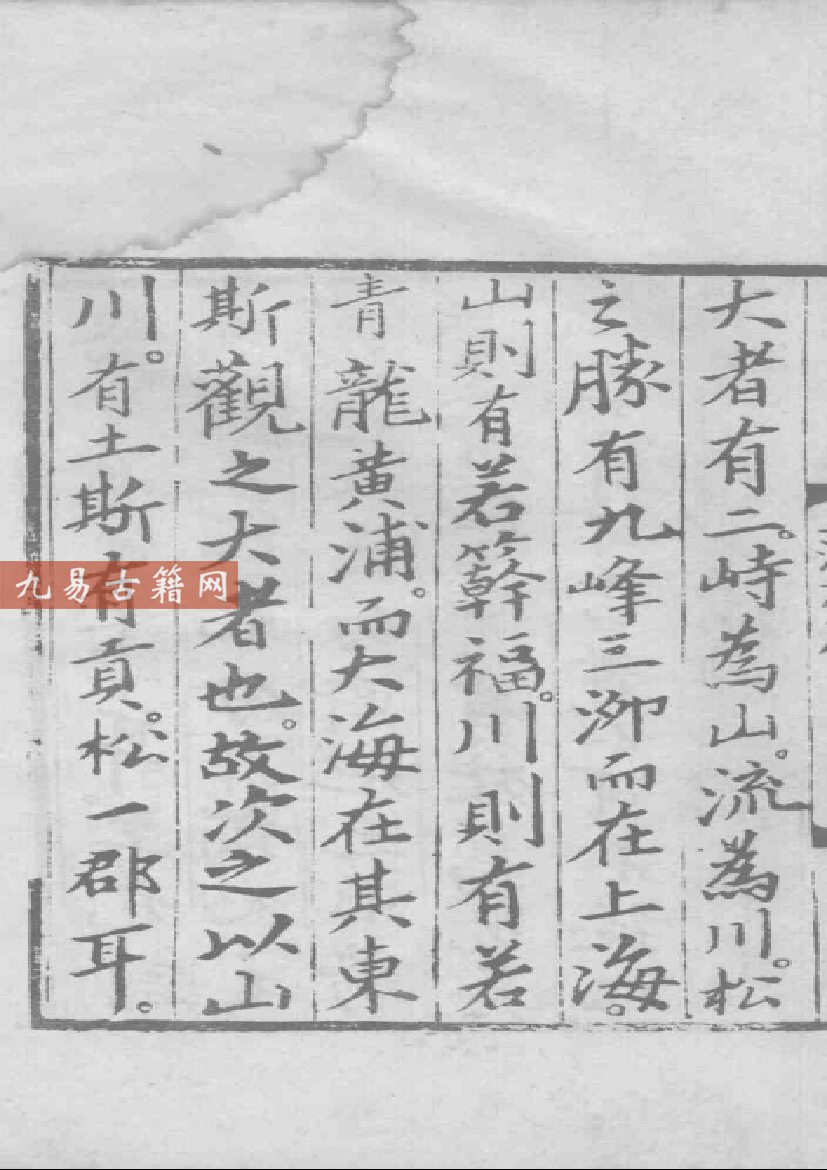 大者有二。峙為山。流為川。松
之勝有九峰三泖而在上海。
山則有若簳福。川則有若
青龍黃浦。而大海在其東
斯觀之大者也。故次之以山
川。有土斯有貢。松一郡耳。
九易古籍网